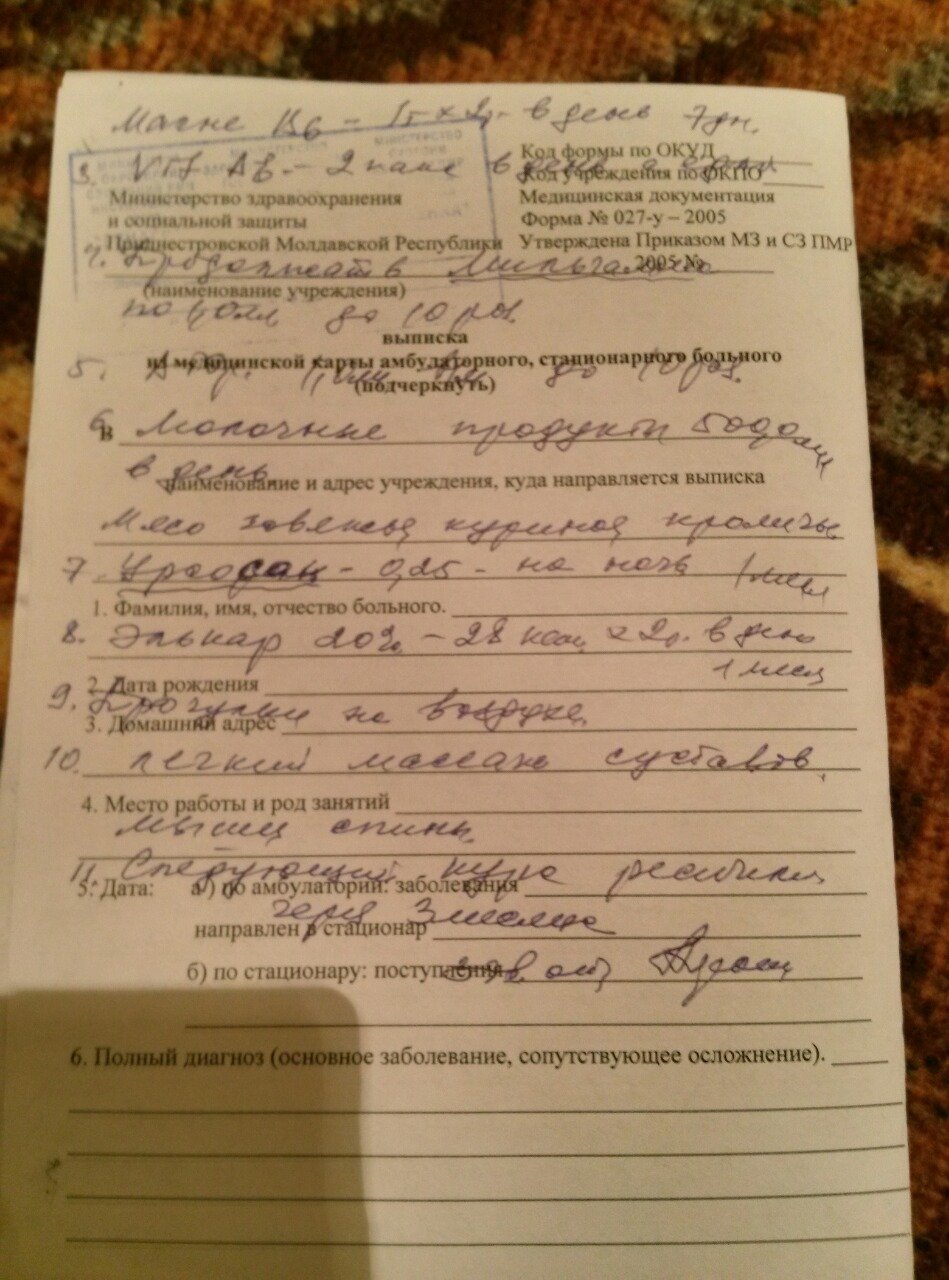 Магне B6 - 1т x 2р. в день 7дн.
Код формы по ОКУД
3. - 2 в день
Код учреждения по ОКПО
Министерство здравоохранения
Медицинская документация
и социальной защиты
Форма № 027-у – 2005
Приднестровской Молдавской Республики
Утверждена Приказом МЗ и СЗ ПМР
2005 №
4. Продолжать Мильгамма
(наименование учреждения)
до 10 раз
выписка
из медицинской карты амбулаторного, стационарного больного
5. до 10 раз.
(подчеркнуть)
6. Молочные продукты
В
в день
наименование и адрес учреждения, куда направляется выписка
Мясо говяжье куриное кроличье
7. Урсосан - 0,25 - на ночь 1 мес
1. Фамилия, имя, отчество больного.
8. Элькар 20% - 28 кап x 2р. в день
1 мес
2. Дата рождения
9. Прогулки на воздухе
3. Домашний адрес
10. легкий массаж суставов,
4. Место работы и род занятий
мышц спины
11. Следующий курс
5. Дата: а) по амбулатории: заболевания
через 3 месяца
направлен в стационар
б) по стационару: поступления
Зав. отд
6. Полный диагноз (основное заболевание, сопутствующее осложнение).